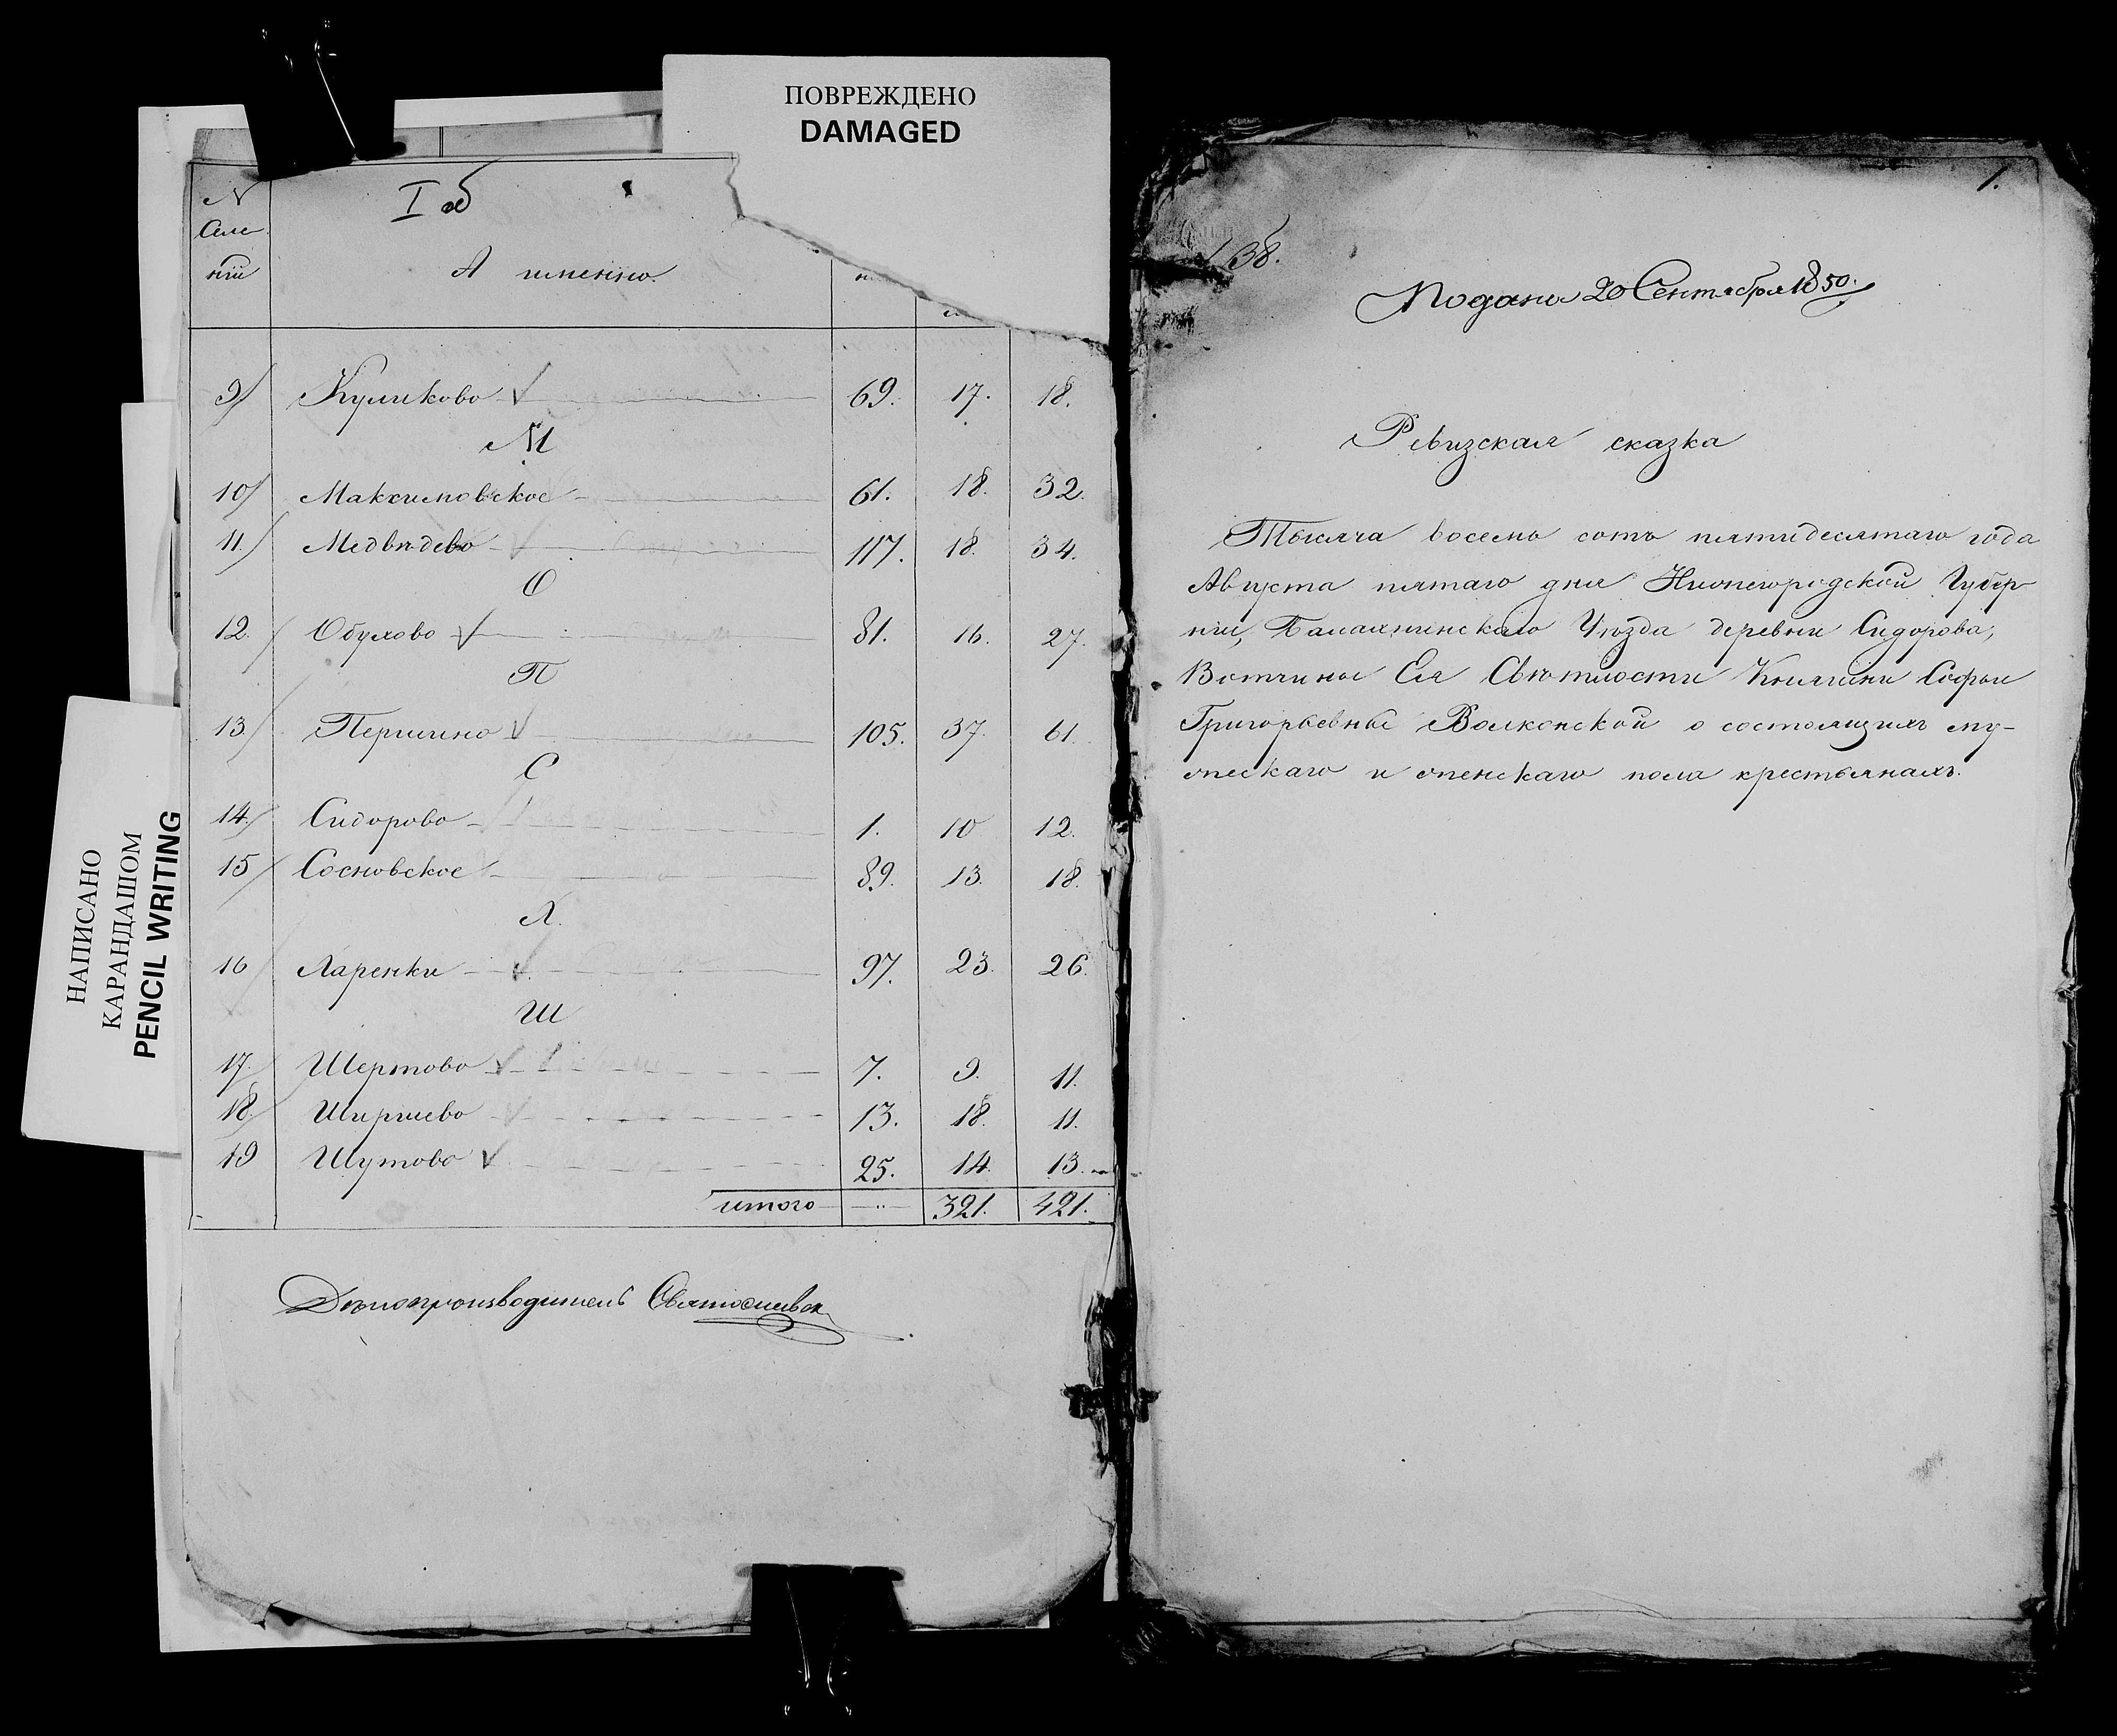 ПОВРЕЖДЕНО
DAMAGED
НАПИСАНО
КАРАНДАШОМ
PENCIL WRITING
N
Селе
ній
А именно.
9/ Куликово 69. 17. 18.
М
10/ Максимовское 61. 18. 32.
11./ Медвѣдево 117. 18. 34.
О
12./ Обухово 81. 16. 27.
П
13/ Першино 105. 37. 61.
С
14/ Сидорово 1. 10 12.
15/ Сосновское 89. 13. 18.
Л.
16 Ларенки 97. 23. 26.
Ш
17. Шертово 7. 9. 11.
18. Ширшево 13. 18. 11.
19 Шутово 25. 14. 13.
итого 321. 421.
Дѣлопроизводитель
1.
Подана 20 Сентября 1850.
Ревизская сказка
Тысяча восемь сотъ пятидесятаго года
Августа пятаго дня Нижегородской Губер-
ніи, Балахнинскаго Уѣзда деревни Сидорова,
Вотчины Ея Свѣтлости Княгини Софьи
Григорьевны Волконской о состоящихъ му-
жескаго и женскаго пола крестьянахъ.